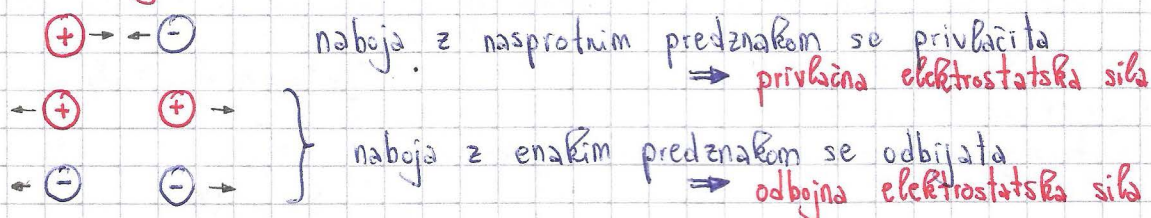 + → ← - naboja z nasprotnim predznakom se privlačita
⇒ privlačna elektrostatska sila
← + + →
naboja z enakim predznakom se odbijata
← - - → ⇒ odbojna elektrostatska sila